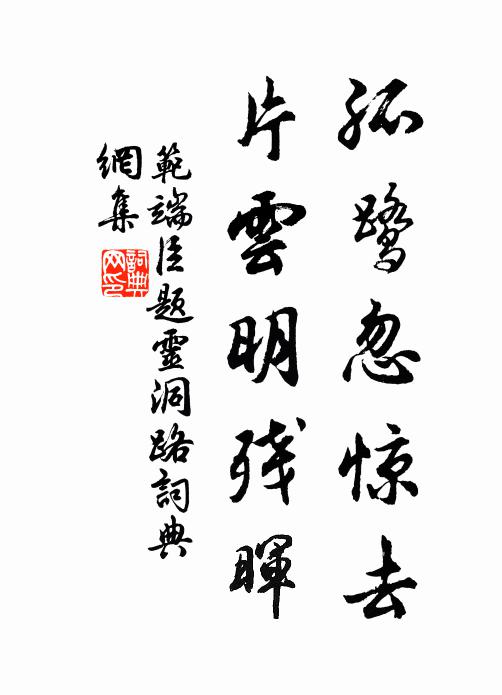 孤鹭忽惊去
片雲明残暉
範端臣题靈洞路詞典
網集
詞典网印